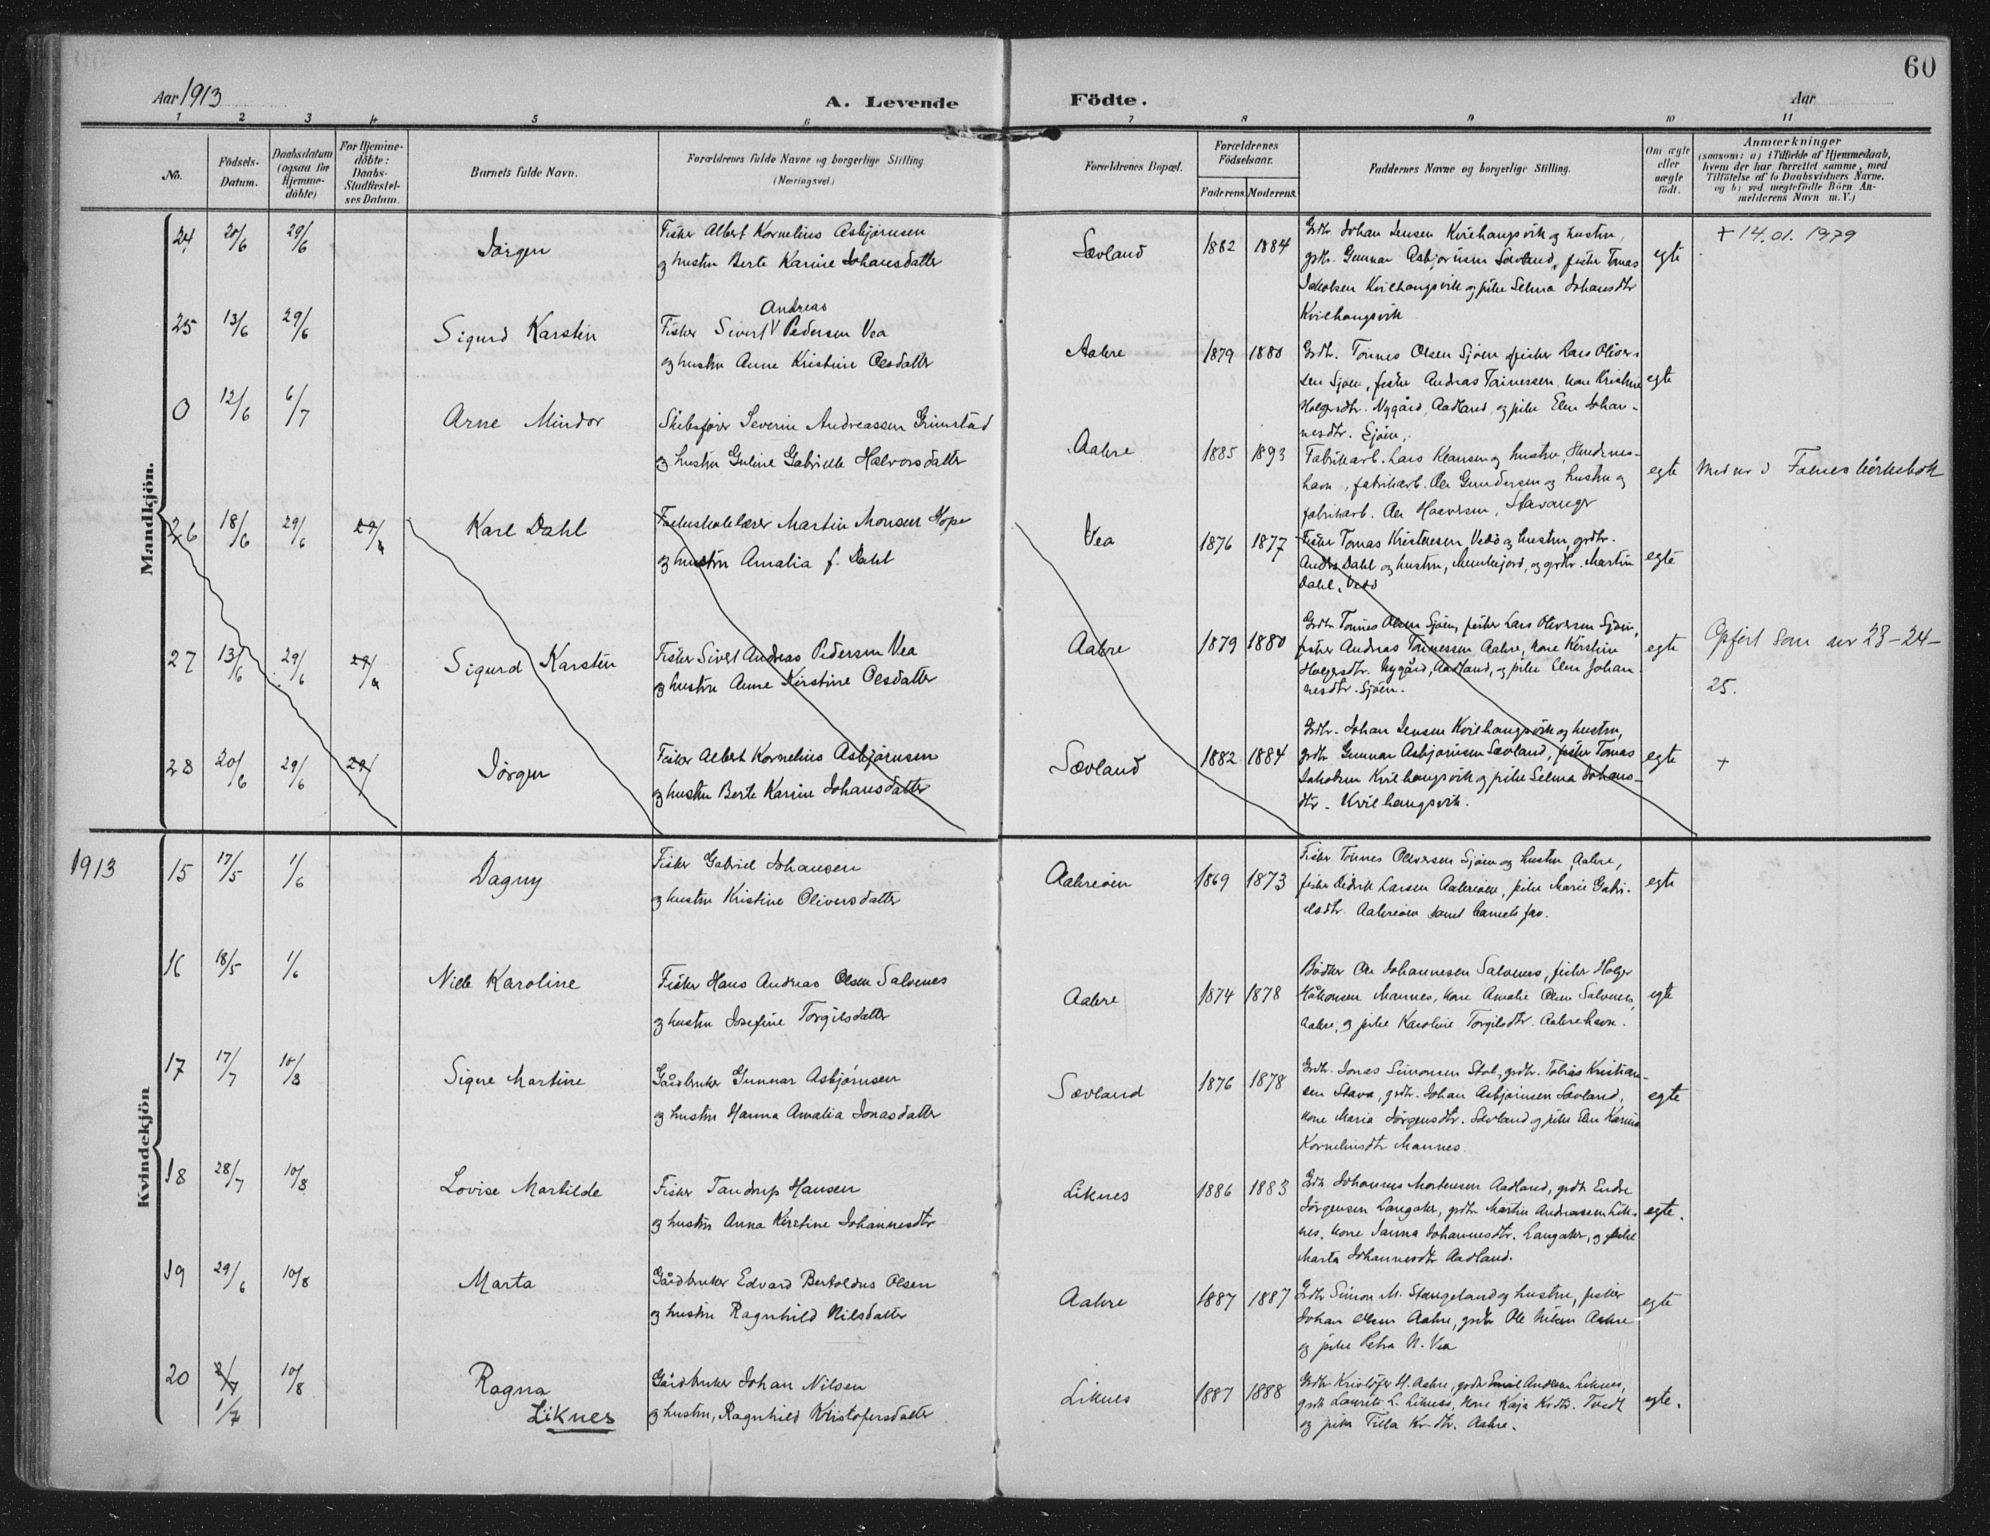 60
Aar 1913
A. Levende
Födte.
Aar
1 2 3 4 5 6 7 8 9 10 11
No.
Födsels-
Datum.
Daabsdatum
(ogsaa for
Hjemme-
döbte)
For Hjemme-
döbte:
Daabs-
Stadfæstel-
ses Datum.
Barnets fulde Navn.
Forældrenes fulde Navne og borgerlige Stilling
(Næringsvei.)
Forældrenes Bopæl.
Forældrenes
Födselsaar.
Faderens. Moderens.
Faddernes Navne og borgerlige Stilling.
Om ægte
eller
uægte
födt.
Anmærkninger
(saasom: a) i Tilfælde af Hjemmedaab,
hvem der har forrettet samme, med
Tilföielse af to Daabsvidners Navne,
og b) ved uegtefödte Börn An-
melderens Navn m. V.)
Mandkjön.
24 20/6 29/6 Jørgen
Fisker Albert Kornelius Asbjørnsen
og hustru Berte Karine Johansdatter
Sævland 1882 1884
Grdbr. Johan Jensen Kvilhaugsvik og hustru,
grdbr. Gunnar Asbjørnsen Sævland, fisker Tomas
Jakobsen Kvilhaugsvik og pike Selma Johansdtr
Kvilhaugsvik
egte
+ 14.01.1979
25 13/6 29/6 Sigurd Karsten
Andreas
Fisker Sivert V Pedersen Vea
og hustru Anne Kristine Olsdatter
Aakre 1879 1880
Grdbr. Tønnes Olsen Sjøen, fisker Lars Oliver-
sen Sjøen, fisker Andreas Tønnessen, kone Kristine
Holgersdtr. Nygård, Aadland, og pike Elen Johan-
nesdtr. Sjøen.
egte
0 12/6 6/7 Arne Mindor
Skibsfører Severin Andreassen Grimstad
og hustru Guline Gabrielle Halvorsdatter
Aakre 1885 1893
Fabrikarb. Lars Klausen og hustru,
havn, fabrikarb. Ole Gundersen og hustru og
fabrikarb. Ole Halvorsen, Stavanger
egte
Med nr i Falnes kirkebok
26 18/6 29/6 29/6 Karl Dahl
Folkeskolelærer Martin Monsen Hope
og hustru Amalia f. Dahl
Vea 1876 1877
Fisker Tomas Kristensen, Vedø og hustru, grdbr.
Andr. Dahl og hustru, Munkejord, og grdbr. Martin
Dahl, Vedø
egte
27 13/6 29/6 29/6 Sigurd Karsten
Fisker Sivert Andreas Pedersen Vea
og hustru Anne Kirstine Olsdatter
Aakre 1879 1880
Grdbr Tønnes Olsen Sjøen, fisker Lars Oliversen Sjøen,
fisker Andreas Tønnesen Aakre, kone Kirstine
Holgersdtr. Nygård, Aadland, og pike Elen Johan
nesdtr. Sjøen.
egte
Opført som nr 23-24-
25.
28 20/6 29/6 29/ Jørgen
Fisker Albert Kornelius Asbjørnsen
og hustru Berte Karine Johansdatter
Sævland 1882 1884
Grdbr. Johan Jensen Kvilhaugsvik og hustru,
grdbr Gunnar Asbjørnsen Sævland, fisker Tomas
Jakobsen Kvilhaugsvik og pike Selma Johans-
dtr. Kvilhaugsvik.
egte
+
1913
Kvindekjön
15 17/5 1/6 Dagny
Fisker Gabriel Johansen
og hustru Kristine Oliversdatter
Aakreøen 1869 1873
Fisker Tønnes Oliversen Sjøen og hustru, Aakre,
fisker Didrik Larsen Aakreøen, pike Marie Gabri-
elsdtr. Aakreøen samt barnets far.
egte
16 18/5 1/6 Nille Karoline
Fisker Hans Andreas Olsen Salvenes
og hustru Josefine Torgilsdatter
Aakre 1874 1878
Bødker Ole Johannesen Salvenes, fisker Holger
Håkonsen Mannes, kone Amalie Olsen Salvenes,
Aakre, og pike Karoline Torgilsdtr. Aakrehavn.
egte
17 17/7 10/8 Signe Martine
Gårdbruker Gunnar Asbjørnsen
og hustru Hanna Amalia Jonasdatter
Sævland 1876 1878
Grdbr. Jonas Simonsen Stol, grdbr. Tobias Kristian-
sen Stava, grdbr. Johan Asbjørnsen Sævland,
kone Maria Jørgensdtr. Sævland og pike Elen Karina
Korneliusdtr Mannes
egte
18 28/7 10/8 Lovise Martilde
Fisker Tandrup Hansen
og hustru Anna Kirstine Johannesdtr
Liknes 1886 1883
Grdbr Johannes Mortensen Aadland, grdbr Endre
Jørgensen Langaker, grdbr Martin Andreassen Lik-
nes, kone Janna Johannesdtr. Langaker, og pike
Marta Johannesdtr Aadland.
egte.
19 29/6 10/8 Marta
Gårdbruker Edvard Bertoldus Olsen
og hustru Ragnhild Nilsdatter
Aakre 1887 1887
Grdbr Simon M. Stangeland og hustru, fisker
Johan Olsen Aakre, grdbr Ole Nilsen Aakre
og pike Petra N. Vea
egte
20 2/7 10/8 Ragna
1/7 Liknes
Gårdbruker Johan Nilsen
og hustru, Ragnhild Kristofersdatter
Liknes 1887 1888
Grdbr Kristofer H. Aakre, grdbr Emil Andersen Liknes,
grdbr Laurits L. Liknes, kone Kaja Krdtr. Tvedt
og pike Tilla Kr dtr. Aakre.
egte.